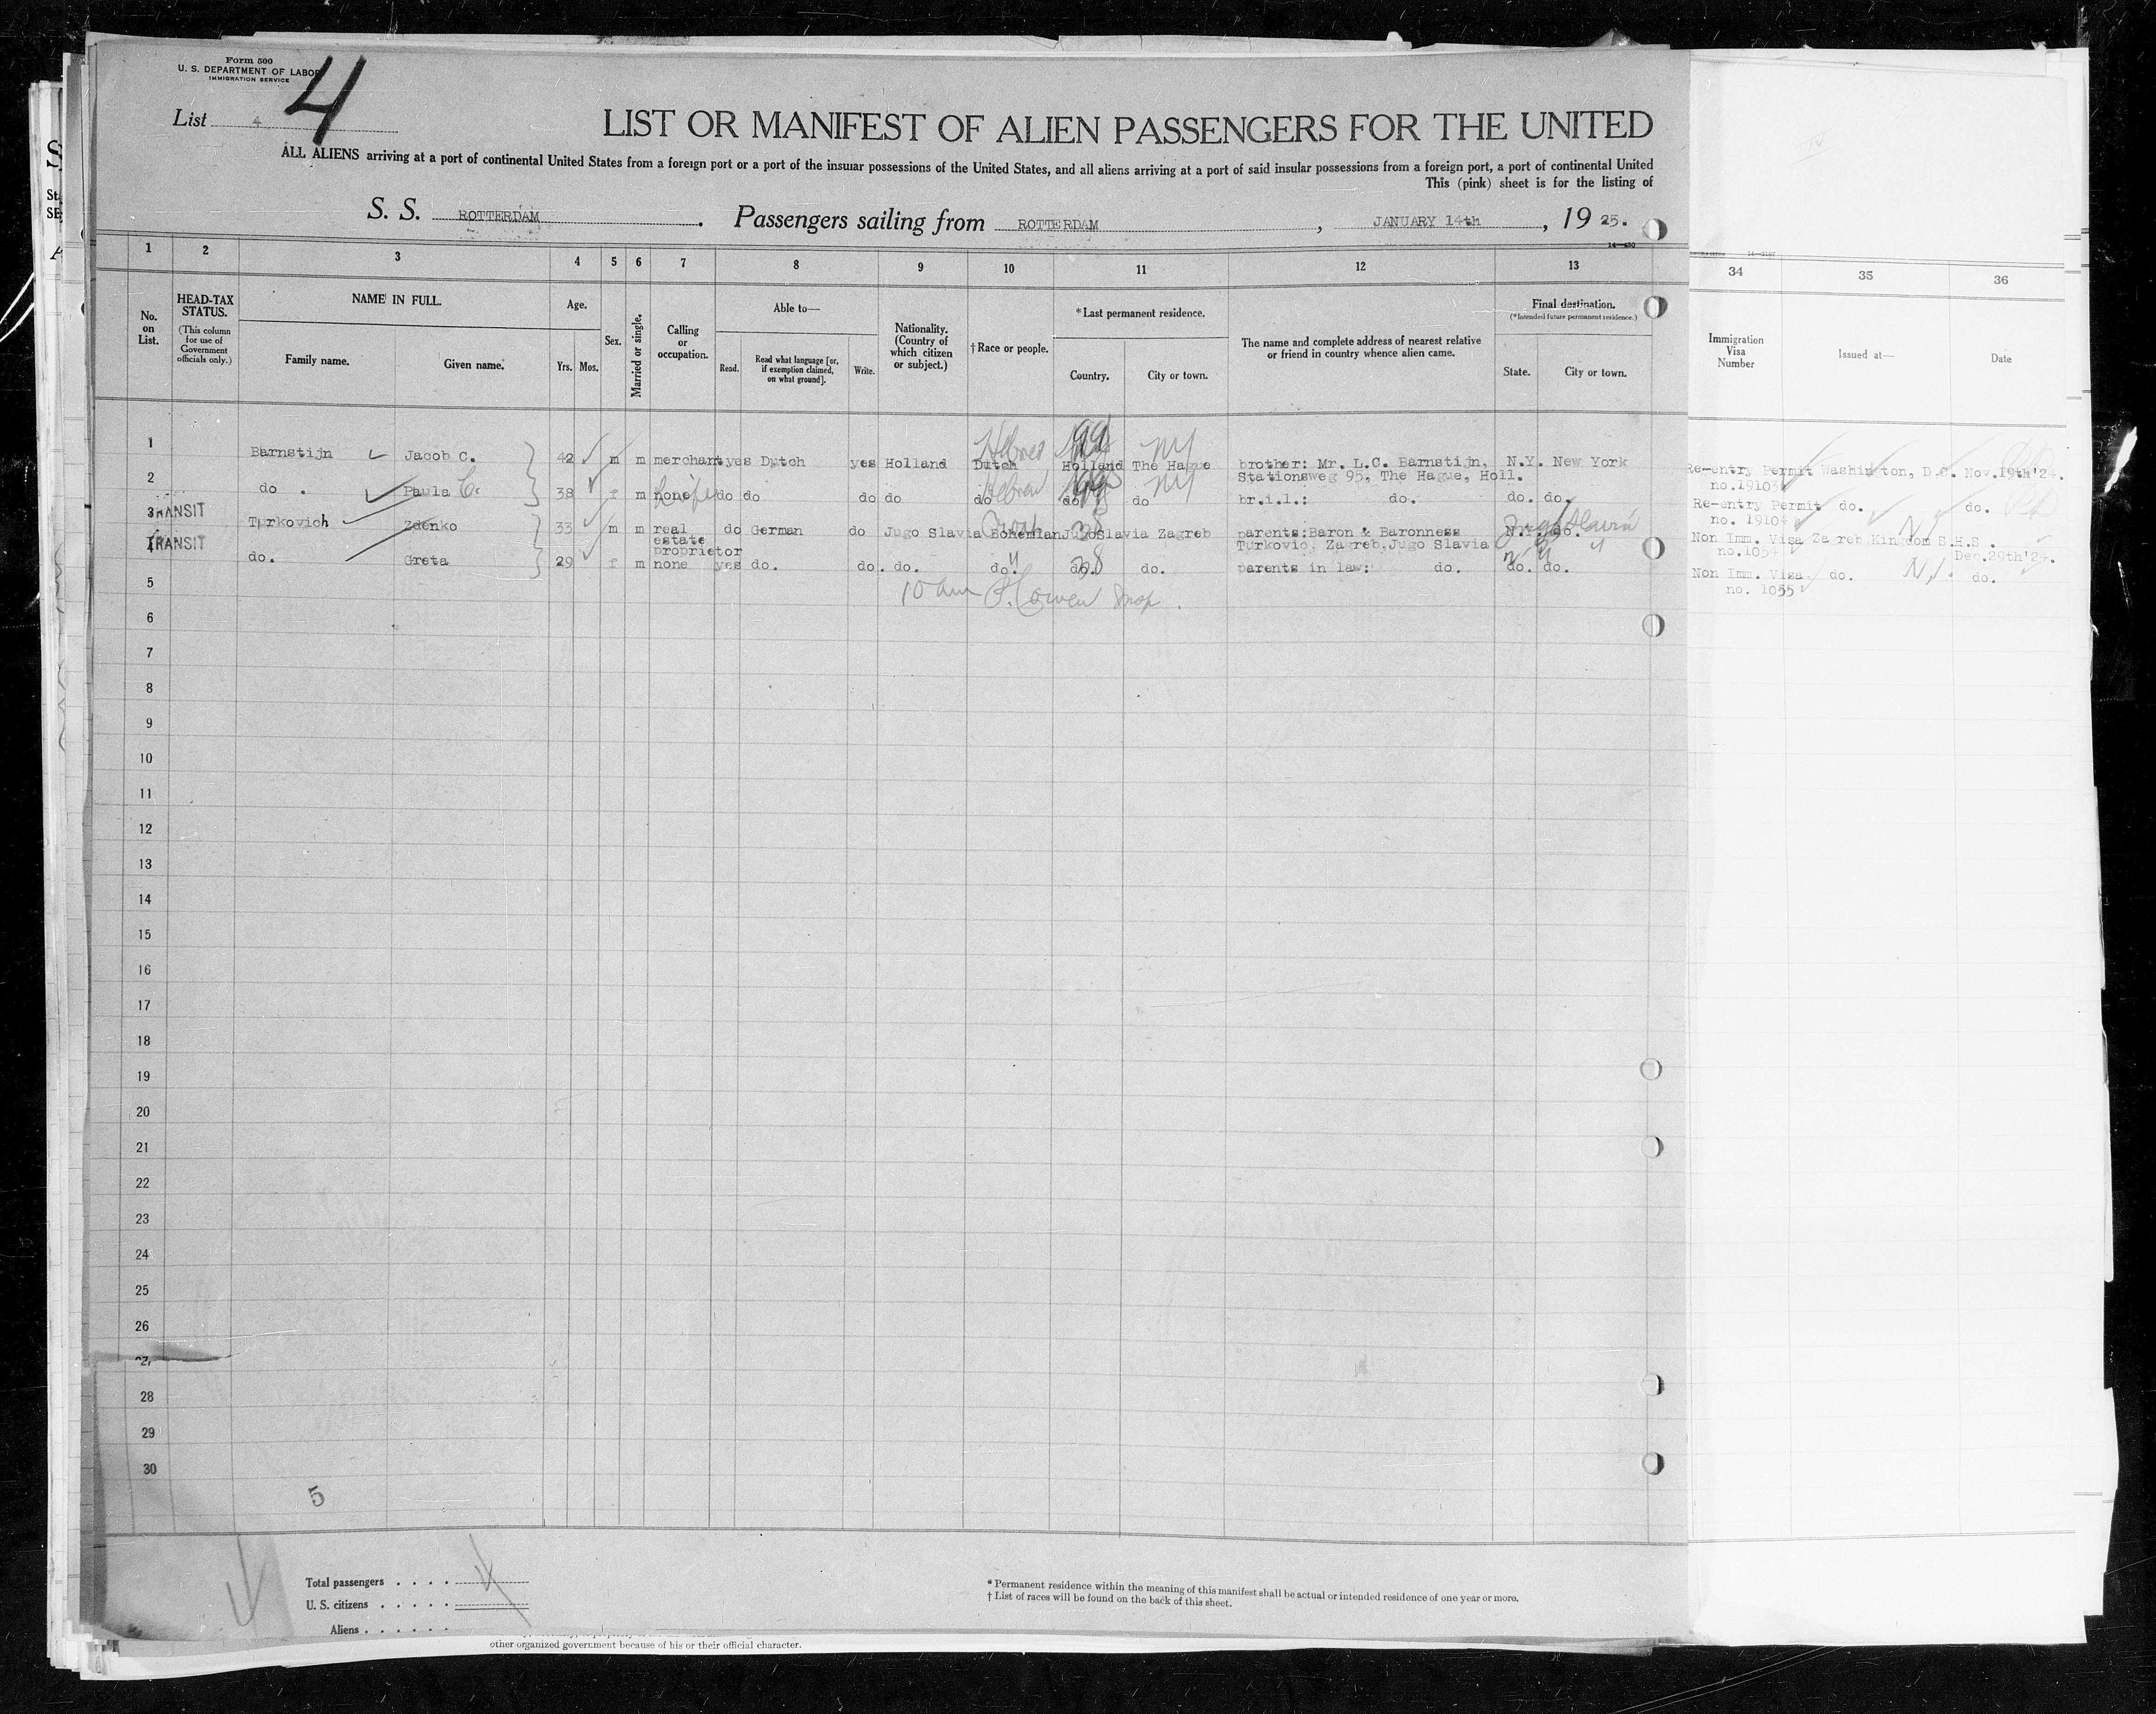 Form 500
U. S. DEPARTMENT OF LABOR
IMMIGRATION SERVICE
List 4
4
LIST OR MANIFEST OF ALIEN PASSENGERS FOR THE UNITED
ALL ALIENS arriving at a port of continental United States from a foreign port or a port of the insular possessions of the United States, and all aliens arriving at a port of said insular possessions from a foreign port, a port of continental United
This (pink) sheet is for the listing of
S. S. ROTTERDAM. Passengers sailing from ROTTERDAM, JANUARY 14th, 19 25.
1 2 3 4 5 6 7 8 9 10 11 12 13 34 35 36
No. on List.
HEAD-TAX STATUS.
(This column for use of Government officials only.)
NAME IN FULL.
Family name. Given name.
Age.
Yrs. Mos.
Sex.
Married or single.
Calling or occupation.
Able to—
Read. Read what language [or, if exemption claimed, on what ground]. Write.
Nationality. (Country of which citizen or subject.)
†Race or people.
*Last permanent residence.
Country. City or town.
The name and complete address of nearest relative or friend in country whence alien came.
Final destination.
(*Intended future permanent residence.)
State. City or town.
Immigration Visa Number
Issued at—
Date
Hebrew NY
1 Barnstijn Jacob C. 42 m m merchant yes Dutch yes Holland Dutch Holland The Hague brother: Mr. L.C. Barnstijn, N.Y. New York Re-entry Permit Washington, D.C. Nov.19th'24.
Stationsweg 95, The Hague, Holl. no.19103
Hebrew NY
2 do. Paula C. 38 f m none Wife do do do do do do do br.i.l.: do. do. do. Re-entry Permit do. do.
no. 19104
TRANSIT Croat 38 Jugoslavia
3 Turkovich Zdenko 33 m m real do German do Jugo Slavia Bohemian JugoSlavia Zagreb parents:Baron & Baronness N.Y. do. Non Imm. Visa Zagreb.Kingdom S.H.S.
estate proprietor Turkovic, Zagreb,Jugo Slavia no.1054 Dec.29th'24.
TRANSIT
4 do. Greta 29 f m none yes do. do. do. do. do. 38 do. parents in law: do. do. do. Non Imm. Visa do. do.
no. 1055
10 am
5
6
7
8
9
10
11
12
13
14
15
16
17
18
19
20
21
22
23
24
25
26
27
28
29
30
5
Total passengers . . . . 4
U. S. citizens . . . . .
Aliens . . . . . .
* Permanent residence within the meaning of this manifest shall be actual or intended residence of one year or more.
† List of races will be found on the back of this sheet.
other organized government because of his or their official character.